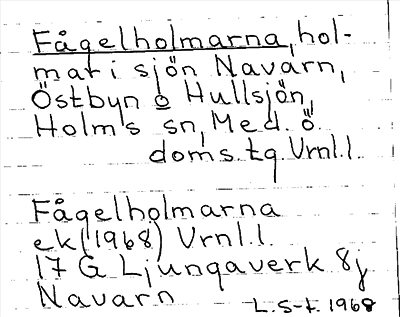 Fågelholmarna, hol-
mar i sjön Navarn,
Östbyn o Hullsjön,
Holms sn, Med. ö.
doms. tg. Vrnl.l.
Fågelholmarna
ek (1968) Vrnl.l.
17 G Ljungaverk 8j
Navarn
L. S-t. 1968